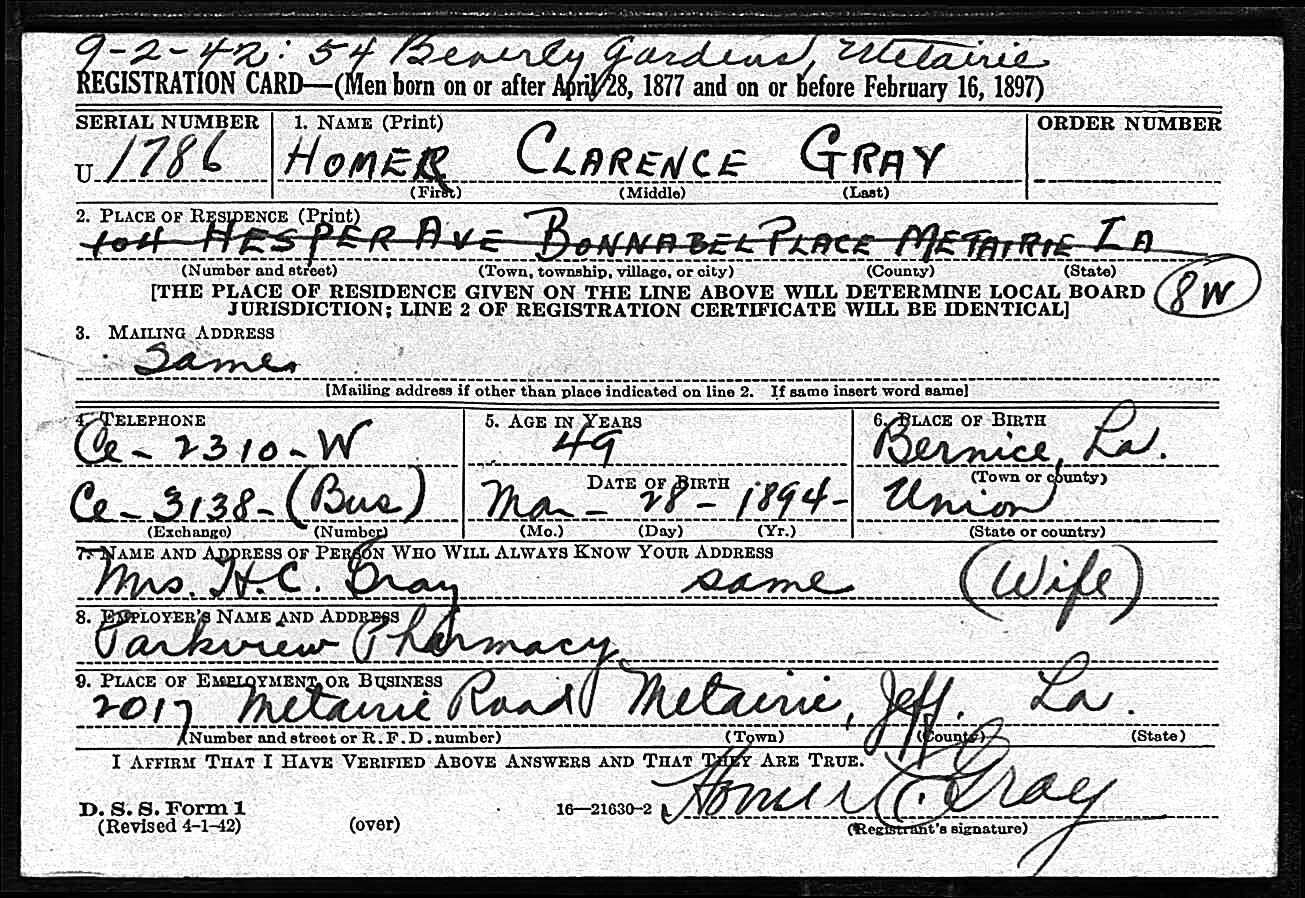 9-2-42: 54 Beverly Gardens, Metairie
REGISTRATION CARD—(Men born on or after April 28, 1877 and on or before February 16, 1897)
SERIAL NUMBER 1. NAME (Print) ORDER NUMBER
U 1786 HOMER CLARENCE GRAY
(First) (Middle) (Last)
2. PLACE OF RESIDENCE (Print)
104 HESPER AVE BONNABEL PLACE METAIRIE LA
(Number and street) (Town, township, village, or city) (County) (State)
[THE PLACE OF RESIDENCE GIVEN ON THE LINE ABOVE WILL DETERMINE LOCAL BOARD 8W
JURISDICTION; LINE 2 OF REGISTRATION CERTIFICATE WILL BE IDENTICAL]
3. MAILING ADDRESS
Same
[Mailing address if other than place indicated on line 2. If same insert word same]
4. TELEPHONE 5. AGE IN YEARS 6. PLACE OF BIRTH
Ce - 2310 - W 49 Bernice, La.
DATE OF BIRTH (Town or county)
Ce - 3138 - (Bus) Mar - 28 - 1894 - Union
(Exchange) (Number) (Mo.) (Day) (Yr.) (State or country)
7. NAME AND ADDRESS OF PERSON WHO WILL ALWAYS KNOW YOUR ADDRESS
Mrs. H.C. Gray same (Wife)
8. EMPLOYER'S NAME AND ADDRESS
Parkview Pharmacy
9. PLACE OF EMPLOYMENT OR BUSINESS
2017 Metairie Road Metairie, Jeff. La.
(Number and street or R. F. D. number) (Town) (County) (State)
I AFFIRM THAT I HAVE VERIFIED ABOVE ANSWERS AND THAT THEY ARE TRUE.
D. S. S. Form 1 16—21630-2 Homer C. Gray
(Revised 4-1-42) (over) (Registrant's signature)